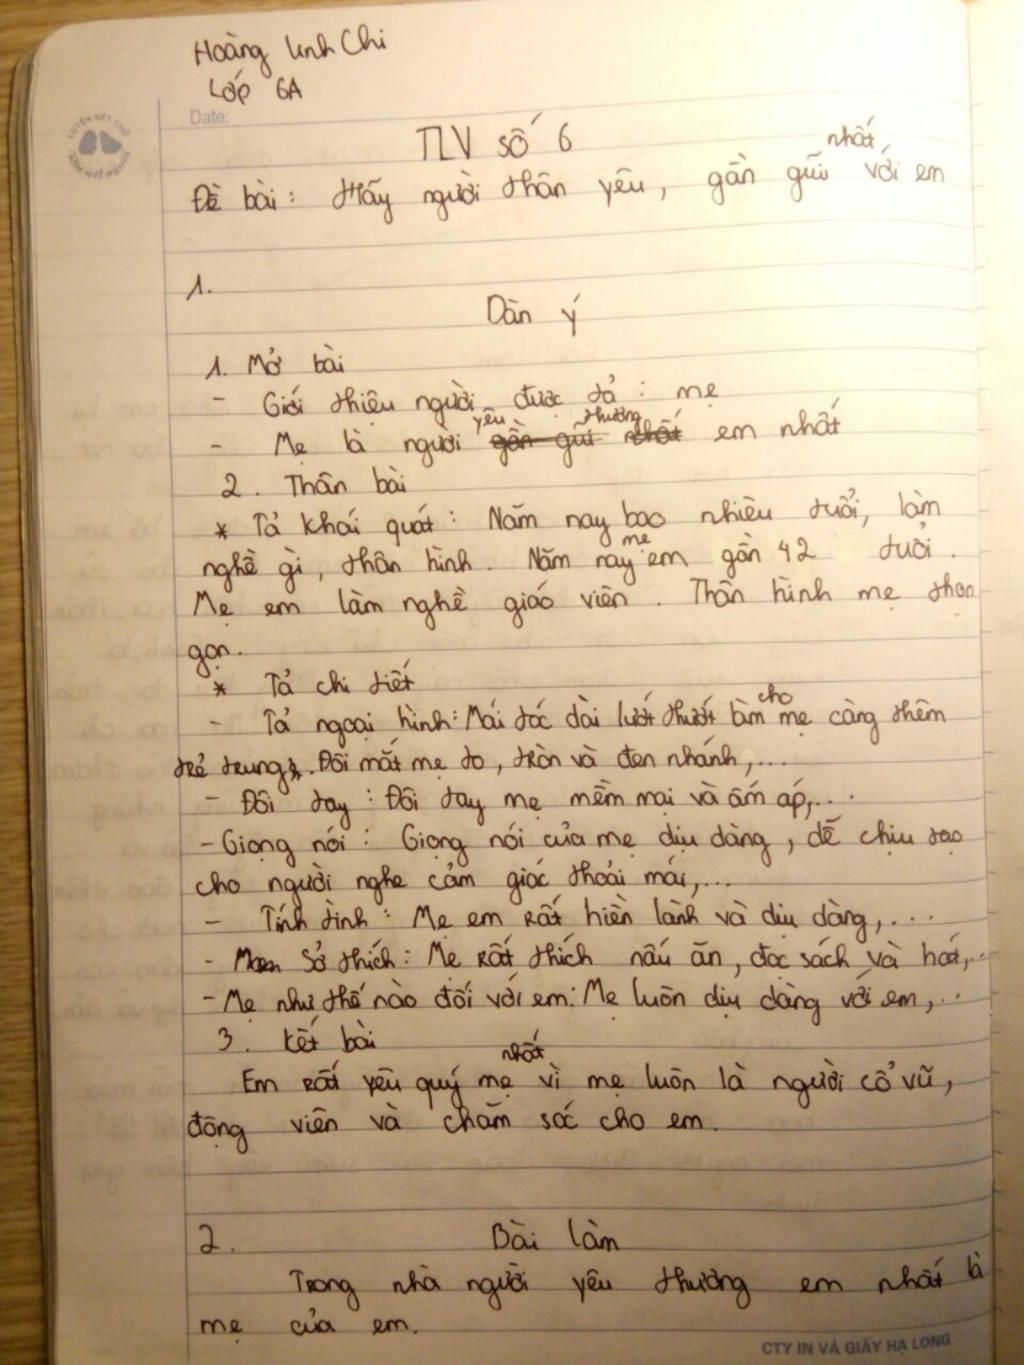 Hoàng Linh Chi
Lớp 6A
Date:
TLV số 6
nhất
Đề bài: Hãy người thân yêu, gần gũi với em
1.
Dàn ý
1. Mở bài
- Giới thiệu người được tả : mẹ
yêu thương
- Mẹ là người gần gũi nhất em nhất
2. Thân bài
* Tả khái quát : Năm nay bao nhiêu tuổi, làm
mẹ
nghề gì, thân hình. Năm nay em gần 42 tuổi.
Mẹ em làm nghề giáo viên. Thân hình mẹ thon
gọn.
* Tả chi tiết
cho
- Tả ngoại hình: Mái tóc dài lướt thướt làm mẹ càng thêm
trẻ trung. Đôi mắt mẹ to, tròn và đen nhánh,...
- Đôi tay : Đôi tay mẹ mềm mại và ấm áp,...
- Giọng nói : Giọng nói của mẹ dịu dàng, dễ chịu tạo
cho người nghe cảm giác thoải mái,...
- Tính tình : Mẹ em rất hiền lành và dịu dàng,...
- Sở thích : Mẹ rất thích nấu ăn, đọc sách và hát,..
- Mẹ như thế nào đối với em: Mẹ luôn dịu dàng với em,...
3. Kết bài
nhất
Em rất yêu quý mẹ vì mẹ luôn là người cổ vũ,
động viên và chăm sóc cho em.
2. Bài làm
Trong nhà người yêu thương em nhất là
mẹ của em.
CTY IN VÀ GIẤY HẠ LONG